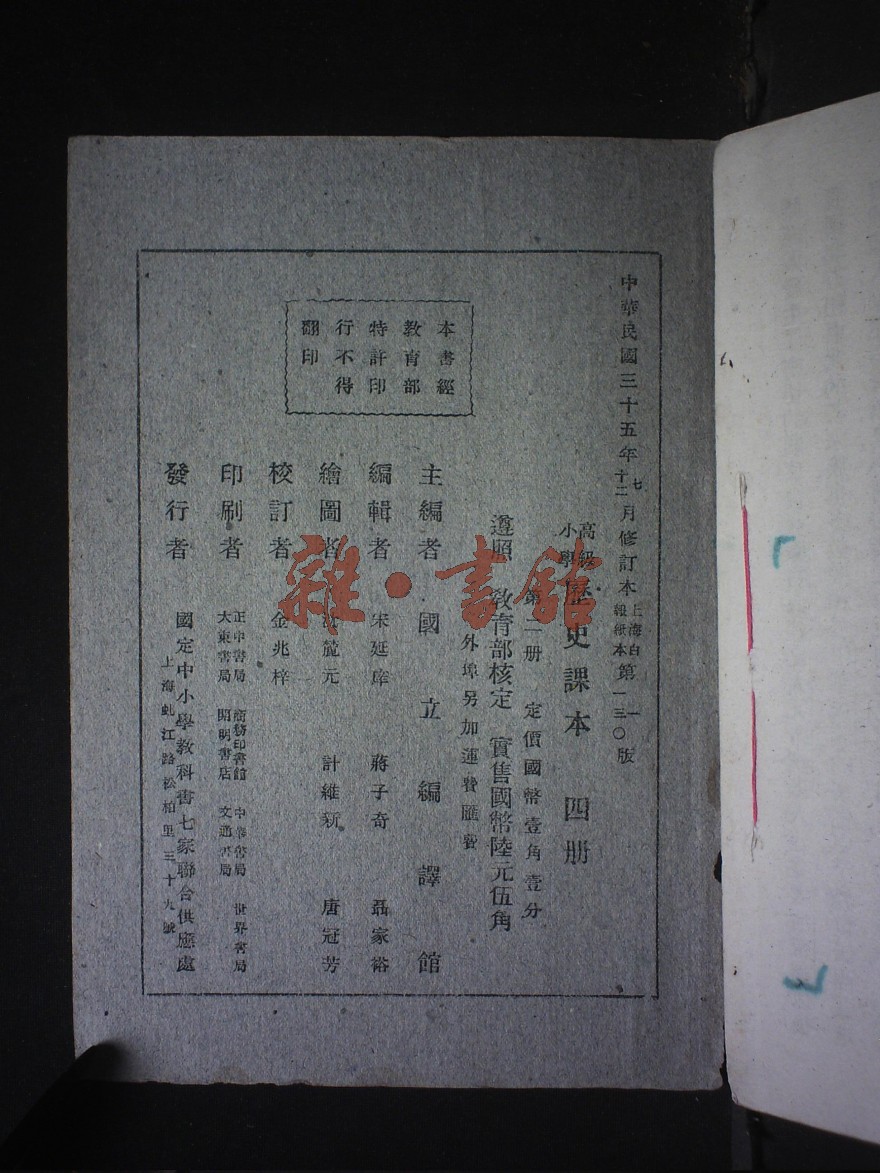 中華民國三十五年七月修訂本上海白報紙本第一版
十二 一三〇
高級小學歷史課本 四册
第二册 定價國幣壹角壹分
遵照 教育部核定 實售國幣陸元伍角
外埠另加運費匯費
主編者 國立編譯館
編輯者 宋延庠 蔣子奇 聶家裕
繪圖者 麓元 計維新 唐冠芳
校訂者 金兆梓
印刷者 正中書局 商務印書館 中華書局 世界書局
大東書局 開明書店 文通書局
發行者 國定中小學教科書七家聯合供應處
上海虬江路松柏里三十九號
本書經
教育部
特許印
行不得
翻印
雜·書館